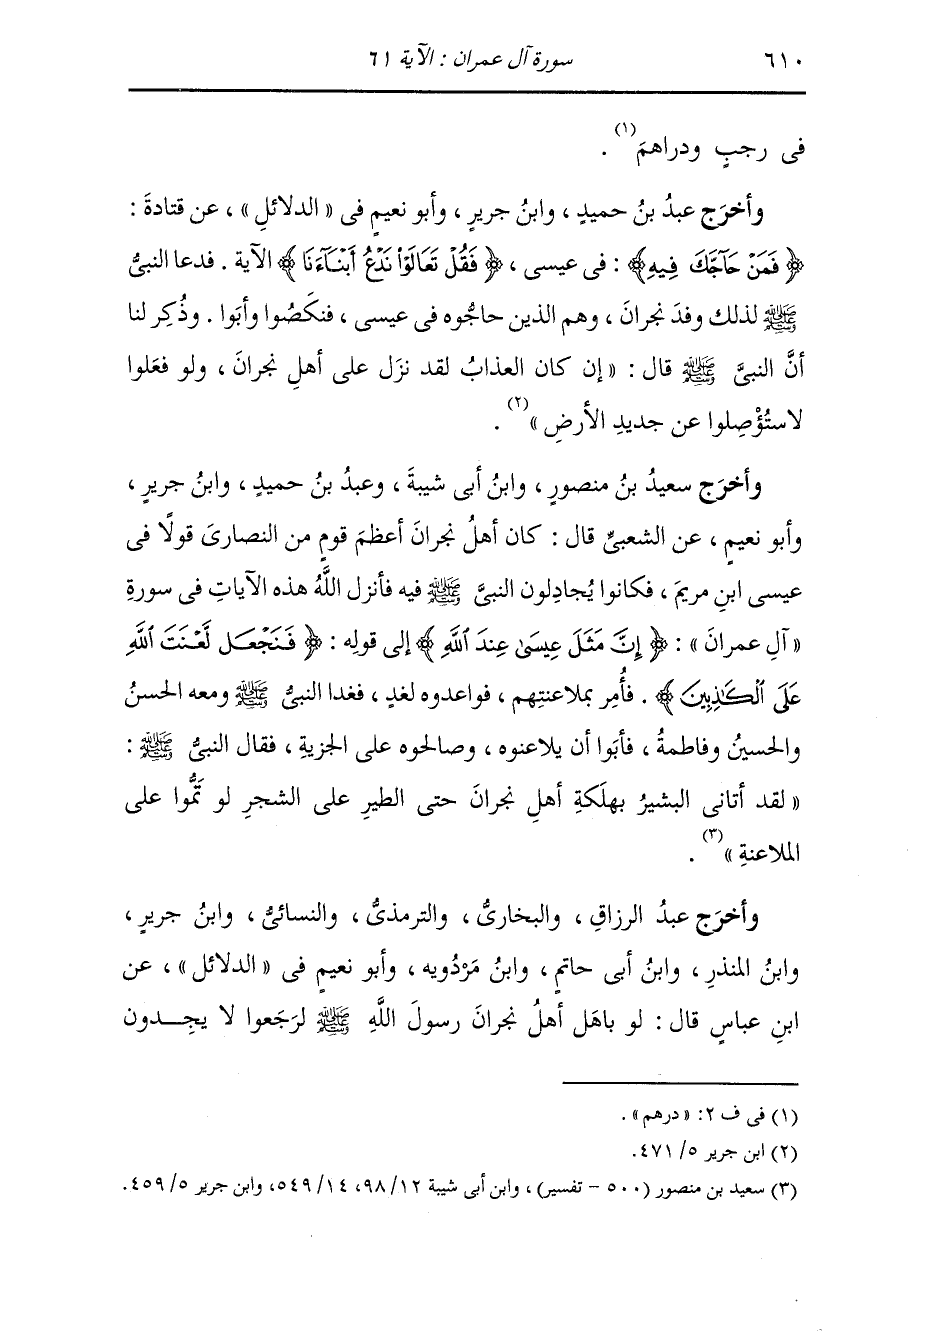 ٦١٠
سورة آل عمران : الآية ٦١
فى رجبٍ ودراهمَ(١) .
وأخرَج عبدُ بنُ حميدٍ ، وابنُ جريرٍ ، وأبو نعيمٍ فى « الدلائلِ » ، عن قتادةَ :
﴿ فَمَنْ حَآجَّكَ فِيهِ ﴾ : فى عيسى ، ﴿ فَقُلْ تَعَالَوْا۟ نَدْعُ أَبْنَآءَنَا ﴾ الآية . فدعا النبىُّ
ﷺ لذلك وفدَ نجرانَ ، وهم الذين حاجُّوه فى عيسى ، فنكَصُوا وأبَوا . وذُكِر لنا
أنَّ النبىَّ ﷺ قال : « إن كان العذابُ لقد نزَل على أهلِ نجرانَ ، ولو فعَلوا
لاستُؤْصِلوا عن جديدِ الأرضِ »(٢) .
وأخرَج سعيدُ بنُ منصورٍ ، وابنُ أبى شيبةَ ، وعبدُ بنُ حميدٍ ، وابنُ جريرٍ ،
وأبو نعيمٍ ، عن الشعبىِّ قال : كان أهلُ نجرانَ أعظمَ قومٍ من النصارىَ قولًا فى
عيسى ابنِ مريمَ ، فكانوا يُجادِلون النبىَّ ﷺ فيه فأنزل اللَّهُ هذه الآياتِ فى سورةِ
« آلِ عمرانَ » : ﴿ إِنَّ مَثَلَ عِيسَىٰ عِندَ ٱللَّهِ ﴾ إلى قولِه : ﴿ فَنَجْعَل لَّعْنَتَ ٱللَّهِ
عَلَى ٱلْكَـٰذِبِينَ ﴾ . فأُمِر بملاعنتِهم ، فواعدوه لغدٍ ، فغدا النبىُّ ﷺ ومعه الحسنُ
والحسينُ وفاطمةُ ، فأبَوا أن يلاعنوه ، وصالحوه على الجزيةِ ، فقال النبىُّ ﷺ :
« لقد أتانى البشيرُ بهلَكةِ أهلِ نجرانَ حتى الطيرِ على الشجرِ لو تَمُّوا على
الملاعنةِ »(٣) .
وأخرَج عبدُ الرزاقِ ، والبخارىُّ ، والترمذىُّ ، والنسائىُّ ، وابنُ جريرٍ ،
وابنُ المنذرِ ، وابنُ أبى حاتمٍ ، وابنُ مَرْدُويه ، وأبو نعيمٍ فى « الدلائل » ، عن
ابنِ عباسٍ قال : لو باهَل أهلُ نجرانَ رسولَ اللَّهِ ﷺ لرَجَعوا لا يجِـــدون
(١) فى ف ٢: « درهم » .
(٢) ابن جرير ٥/ ٤٧١.
(٣) سعيد بن منصور (٥٠٠ - تفسير) ، وابن أبى شيبة ١٢/ ٩٨، ١٤/ ٥٤٩، وابن جرير ٥/ ٤٥٩.